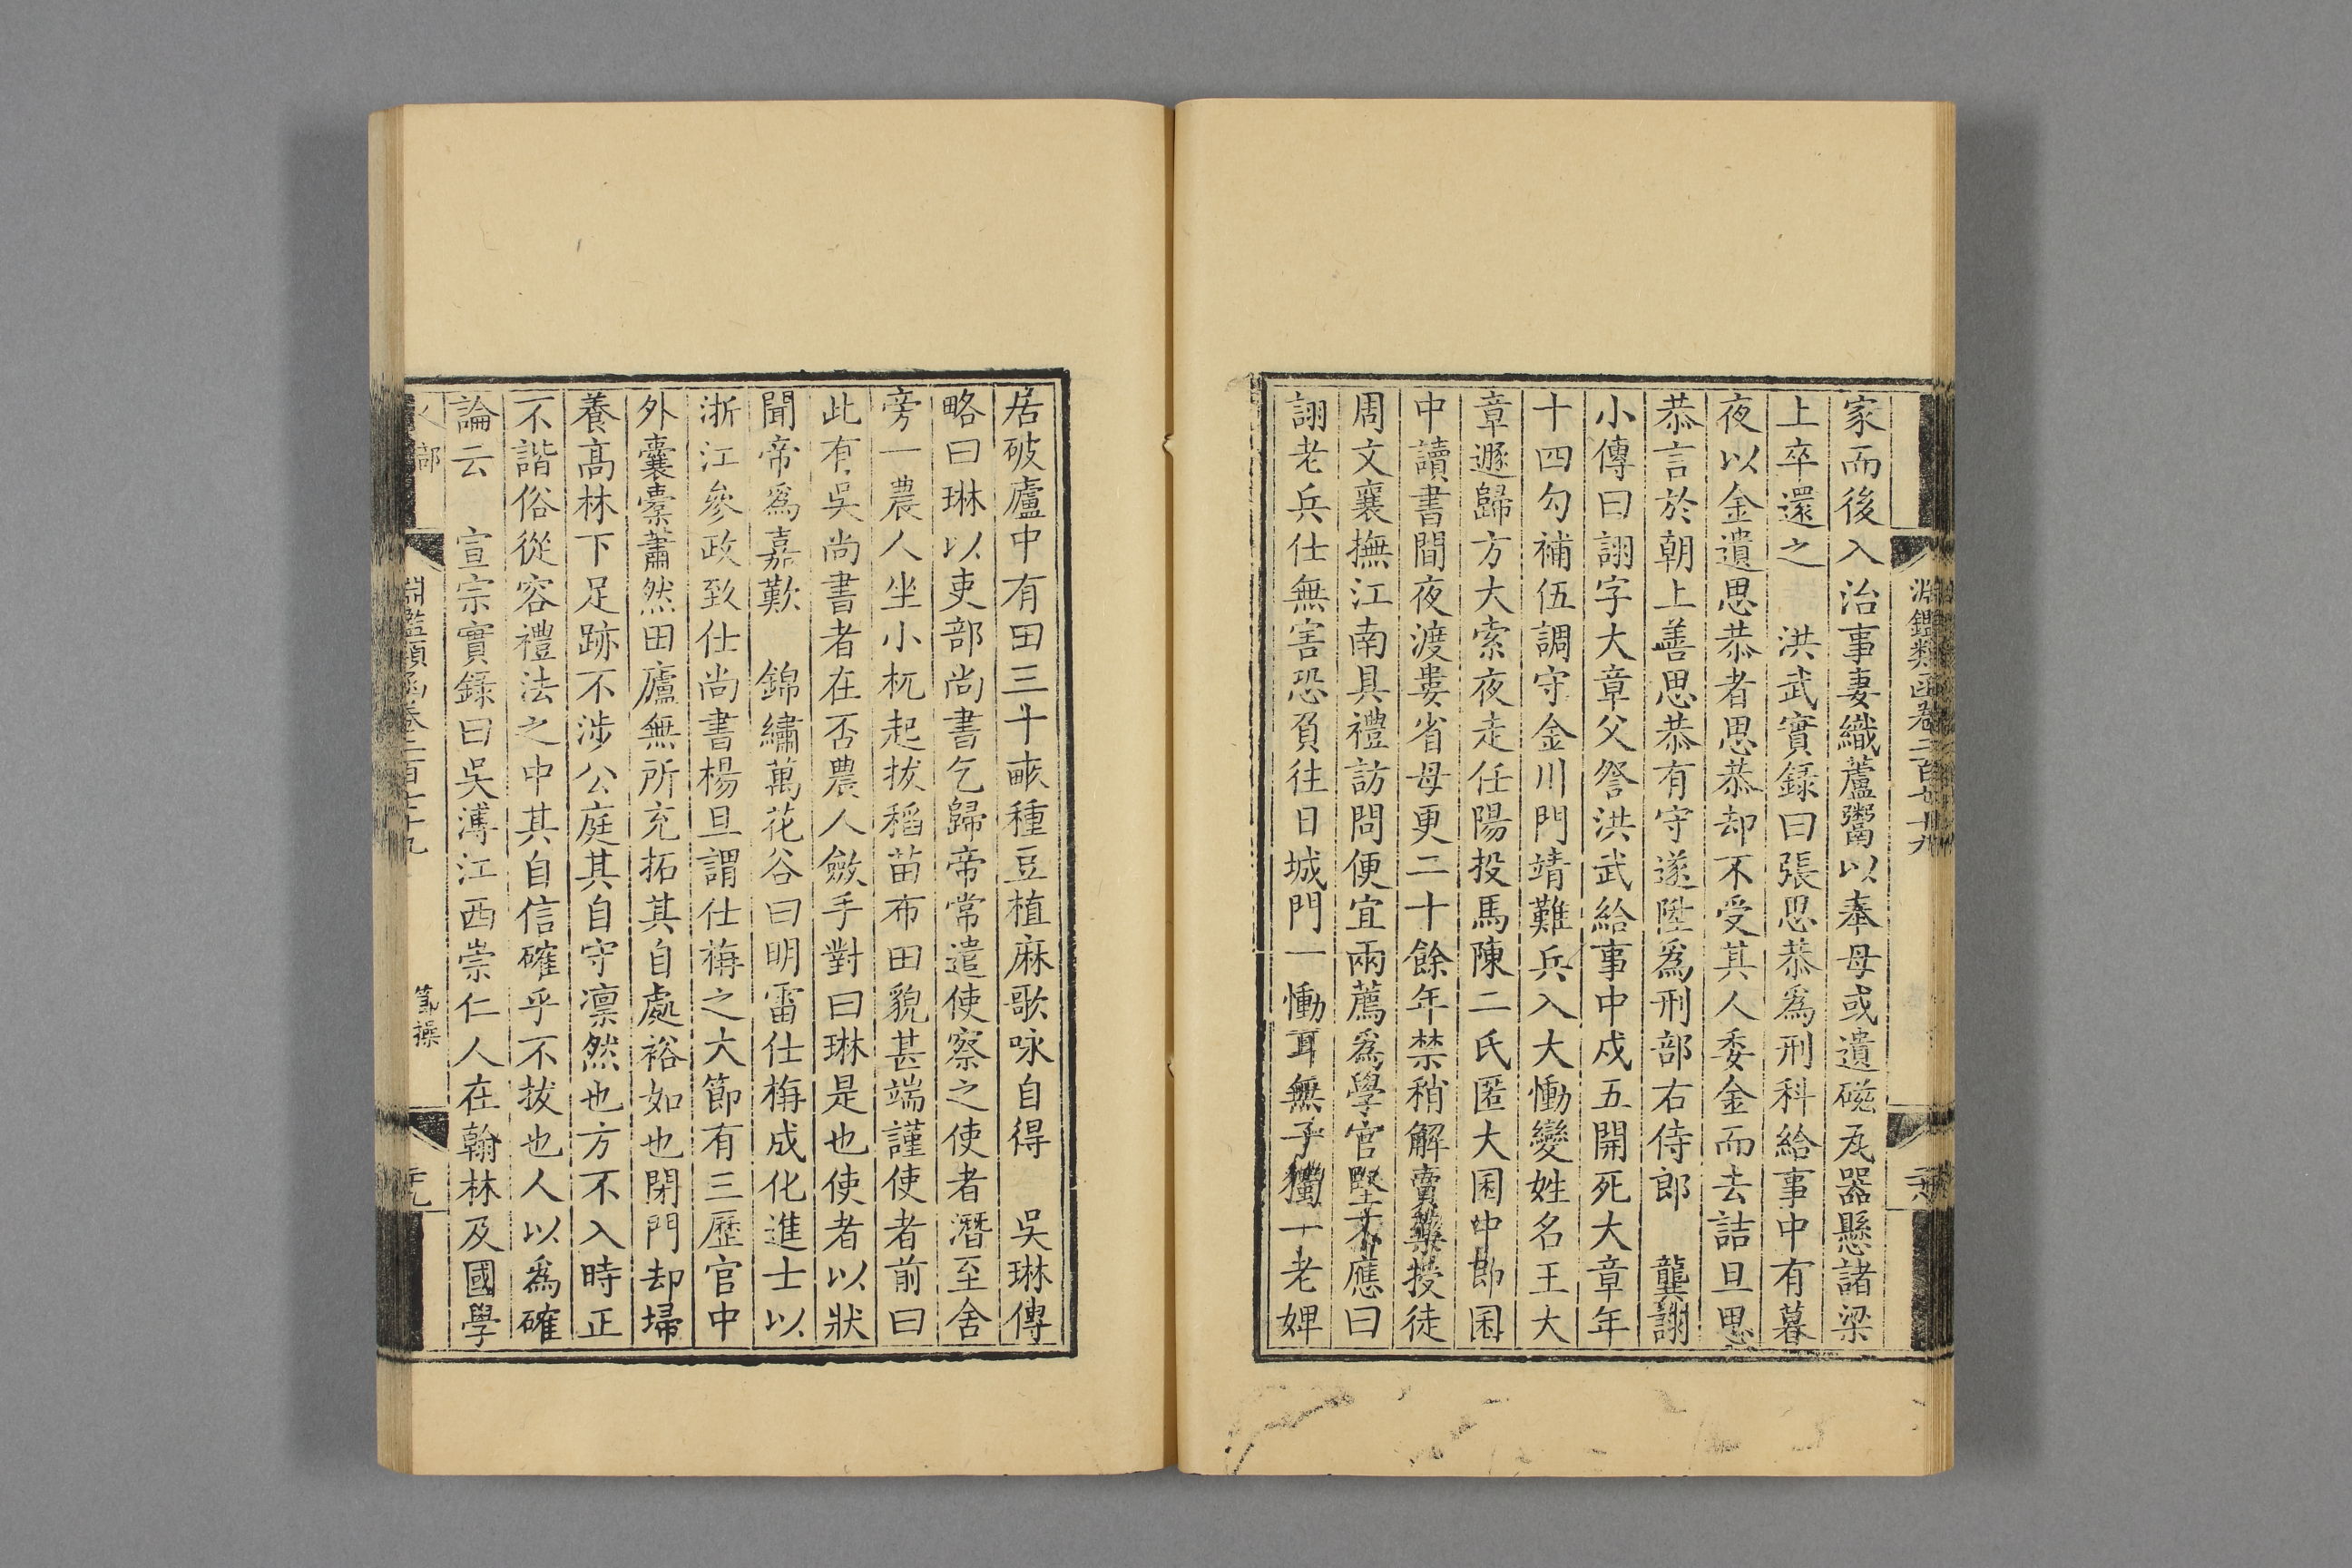 淵鑑類函卷二百七十九
家而後入治事妻織蘆鬻以奉母或遺磁瓦器懸諸梁
上卒還之　洪武實錄曰張思恭爲刑科給事中有暮
夜以金遺思恭者思恭却不受其人委金而去詰旦思
恭言於朝上善思恭有守遂陞爲刑部右侍郎　龔詡
小傳曰詡字大章父詧洪武給事中戍五開死大章年
十四勾補伍調守金川門靖難兵入大慟變姓名王大
章遯歸方大索夜走任陽投馬陳二氏匿大囷中卽囷
中讀書間夜渡婁省母更二十餘年禁稍解賣藥授徒
周文襄撫江南具禮訪問便宜兩薦爲學官堅不應曰
詡老兵仕無害恐負往日城門一慟耳無子獨一老婢
居破廬中有田三十畝種豆植麻歌咏自得　吳琳傳
略曰琳以吏部尚書乞歸帝常遣使察之使者潛至舍
旁一農人坐小杌起拔稻苗布田貌甚端謹使者前曰
此有吳尚書者在否農人斂手對曰琳是也使者以狀
聞帝爲嘉歎　錦繡萬花谷曰明雷仕栴成化進士以
浙江參政致仕尚書楊旦謂仕栴之大節有三歷官中
外囊橐蕭然田廬無所充拓其自處裕如也閉門却埽
養高林下足跡不涉公庭其自守凛然也方不入時正
不諧俗從容禮法之中其自信確乎不拔也人以爲確
論云　宣宗實錄曰吳溥江西崇仁人在翰林及國學
人部
淵鑑類函卷二百七十九
節操